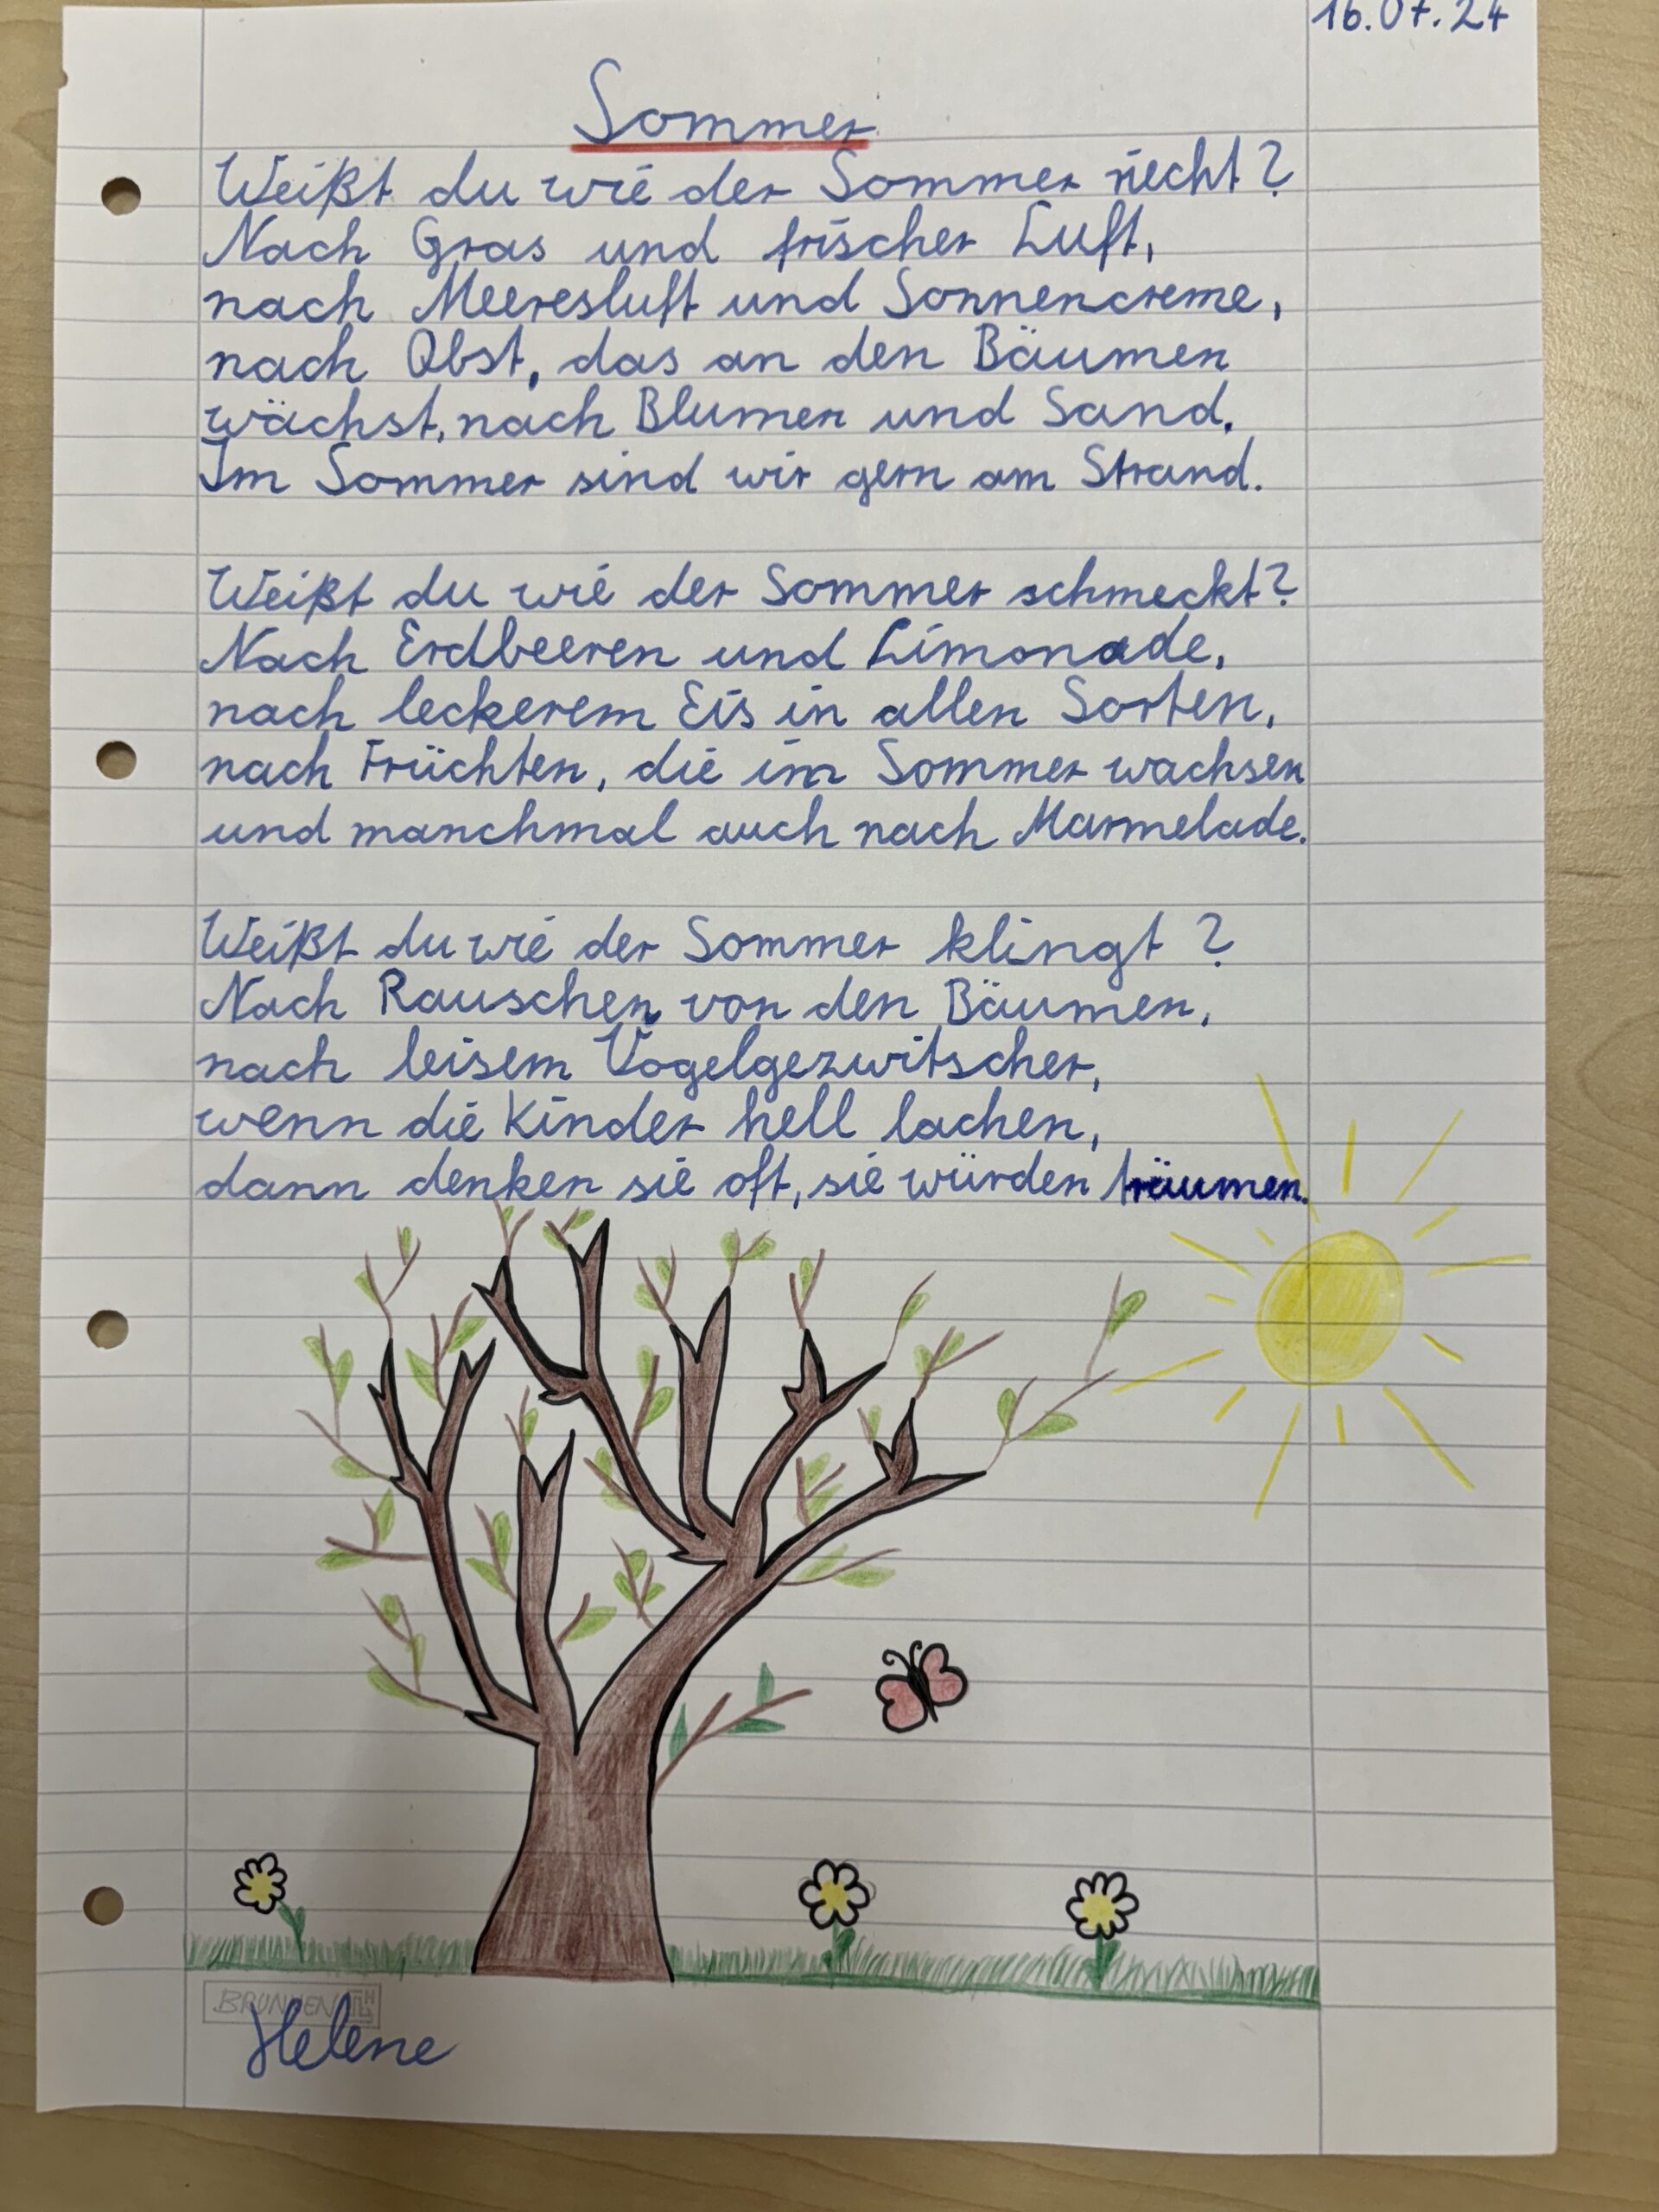 16.07.24
Sommer
Weißt du wie der Sommer riecht?
Nach Gras und frischer Luft,
nach Meeresluft und Sonnencreme,
nach Obst, das an den Bäumen
wächst, nach Blumen und Sand.
Im Sommer sind wir gern am Strand.
Weißt du wie der Sommer schmeckt?
Nach Erdbeeren und Limonade,
nach leckerem Eis in allen Sorten,
nach Früchten, die im Sommer wachsen
und manchmal auch nach Marmelade.
Weißt du wie der Sommer klingt?
Nach Rauschen von den Bäumen,
nach leisem Vogelgezwitscher,
wenn die Kinder hell lachen,
dann denken sie oft, sie würden träumen.
BRUNNEN
Helene